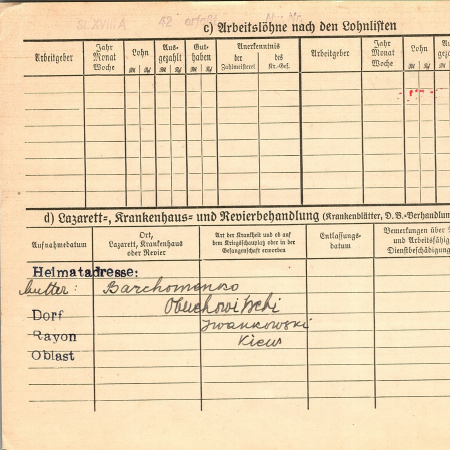 St. XVIII A
42
c) Arbeitslöhne nach den Lohnlisten
Arbeitgeber Jahr Monat Woche Lohn Aus- gezahlt Gut- haben Anerkenntnis der Zahlmeisterei des Kr.-Gef. Arbeitgeber Jahr Monat Woche Lohn Au gezo
d) Lazarett-, Krankenhaus- und Revierbehandlung (Krankenblätter, D. B.-Verhandlun
Aufnahmedatum Ort, Lazarett, Krankenhaus oder Revier Art der Krankheit und ob auf dem Kriegsschauplatz oder in der Gefangenschaft erworben Entlassungs- datum Bemerkungen über und Arbeitsfähig Dienstbeschädigung
Heimatadresse:
Mutter: Barchomenko
Dorf Obuchowitschi
Rayon Iwankowski
Oblast Kiew